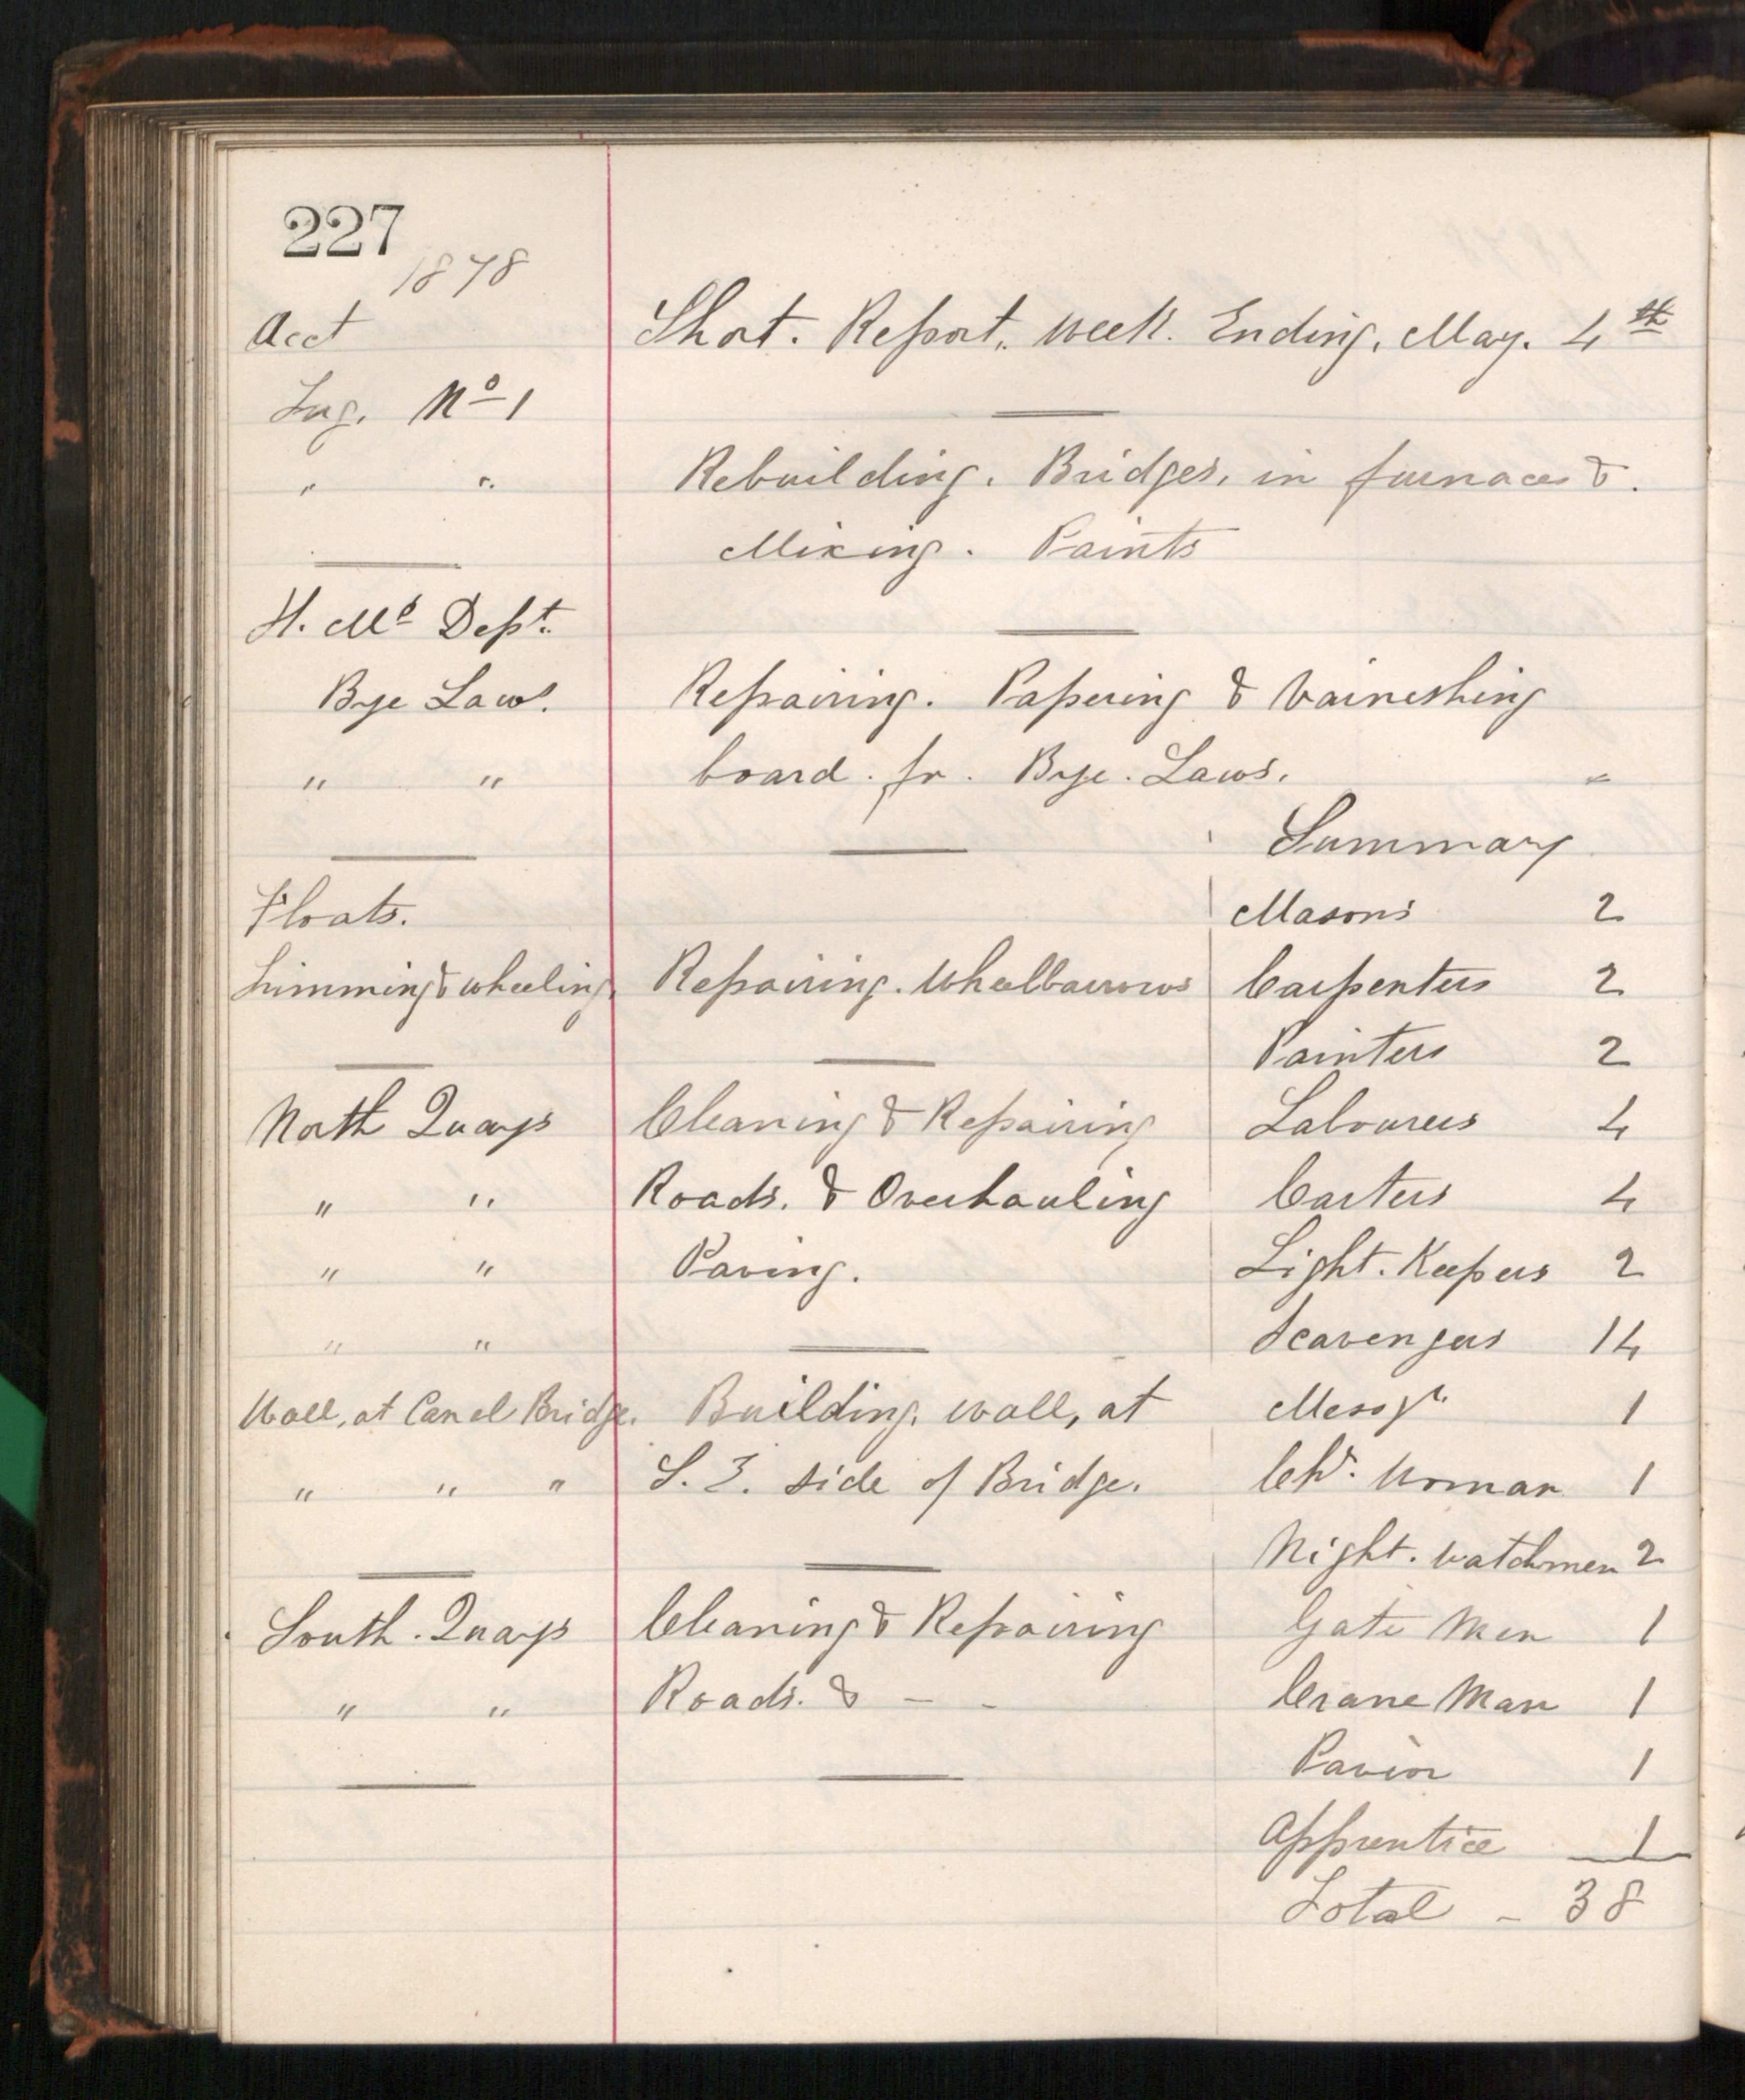 227
1878
Acct
Short. Report. week. Ending. May. 4th
Tug. No 1
" "
Rebuilding. Bridges. in furnaces &.
Mixing. Paints
H. Ms Dept.
Bye Laws.
Repairing. Papering & Varneshing
" "
board. for. Bye. Laws. "
Summary
Floats.
Masons 2
Trimming & wheeling
Repairing. Wheelbarrows
Carpenters 2
Painters 2
North Quays
Cleaning & Repairing
Labourers 4
" "
Roads. & Overhauling
Carters 4
" "
Paving.
Light. Keepers 2
" "
Scavengers 14
Wall, at Canal Bridge.
Building. wall, at
Messgr. 1
" " "
S. E. side of Bridge.
Chr. Woman 1
Night. watchmen 2
South. Quays
Cleaning & Repairing
Gate Men 1
" "
Roads. & - -
Crane Man 1
Pavior 1
Apprentice 1
Total - 38